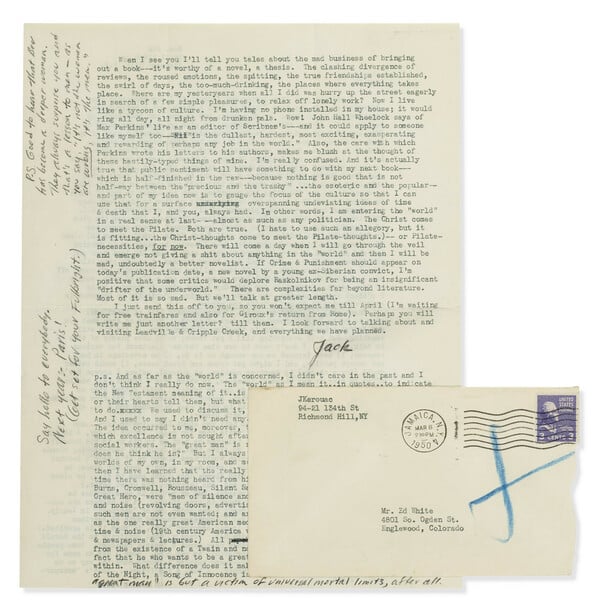 When I see you I'll tell you tales about the mad business of bringing
out a book---it's worthy of a novel, a thesis. The clashing divergence of
reviews, the roused emotions, the spitting, the true friendships established,
the swirl of days, the too-much-drinking, the places where everything takes
place. Where are my yesteryears when all I did was hurry up the street eagerly
in search of a few simple pleasures, to relax off lonely work? Now I live
like a tycoon of culture. I'm having no phone installed in my house; it would
ring all day, all night from drunken pals. Wow! John Hall Wheelock says of
Max Perkins' life as an editor of Scribners---and it could apply to someone
like myself too---"is the dullest, hardest, most exciting, exasperating
and rewarding of perhaps any job in the world." Also, the care with which
Perkins wrote his letters to his authors, makes me blush at the thought of
these hastily-typed things of mine. I'm really confused. And it's actually
true that public sentiment will have something to do with my next book---
which is half-finished in the rex---because nothing good that is not
half-way between the "precious and the trashy"...the esoteric and the popular--
and part of my idea now is to gauge the focus of the culture so that I can
use that for a surface overspanning undeviating ideas of time
& death that I, and you, always had. In other words, I am entering the "world"
in a real sense at last---almost as such as any politician. The Christ comes
to meet the Pilate. Both are true. (I hate to use such an allegory, but it
is fitting...the Christ-thoughts come to meet the Pilate-thoughts.)-- or Pilate-
necessities, for now. There will come a day when I will go through the veil
and emerge not giving a shit about anything in the "world" and then I will be
mad, undoubtedly a better novelist. If Crime & Punishment should appear on
today's publication date, a new novel by a young ex-Siberian convict, I'm
positive that some critics would deplore Raskolnikov for being an insignificant
"drifter of the underworld." There are complexities far beyond literature.
Most of it is so mad. But we'll talk at greater length.
I just send this off to you, so you won't expect me till April (I'm waiting
for free trainfares and also for Giroux's return from Rome). Perhaps you will
write me just another letter? till then. I look forward to talking about and
visiting Leadville & Cripple Creek, and everything we have planned.
Jack
p.s. And as far as the "world" is concerned, I didn't care in the past and I
don't think I really do now. The "world" as I mean it..in quotes..to indicate
the New Testament meaning of it..is
or their heart tell them, but what
to do. We used to discuss it,
And I used to say I didn't need any
The idea occurred to me, moreover,
which excellence is not sought after
social workers. The "great man" is
does he think he is?" But I always
worlds of my own, in my room, and
then I have learned that the really
time there was nothing heard from hi
Burns, Cromwell, Rousseau, Silent
Great Hero, were "men of silence and
and noise (revolving doors, advertis
such men are not even wanted; and an
as the one really great American
time & noise (19th century America
& newspapers & lectures.) All
from the existence of a Twain and
fact that he who wants to be a great
within. What difference does it mak
of the Night, a Song of Innocence
"great man" is but a victim of universal mortal limits, after all.
PS Good to hear that Bev
has become a proper woman.
They always require you and
that's a person to man - as
you say, "It's not the women
are wrong, it's the men."
Say hello to everybody.
Next year:- Paris!
(Get set for your Fulbright.)
JKerouac
94-21 134th St
Richmond Hill, NY
JAMAICA, N.Y.
MAR 6
1950
3 CENTS 3
Mr. Ed White
4801 So. Ogden St.
Englewood, Colorado